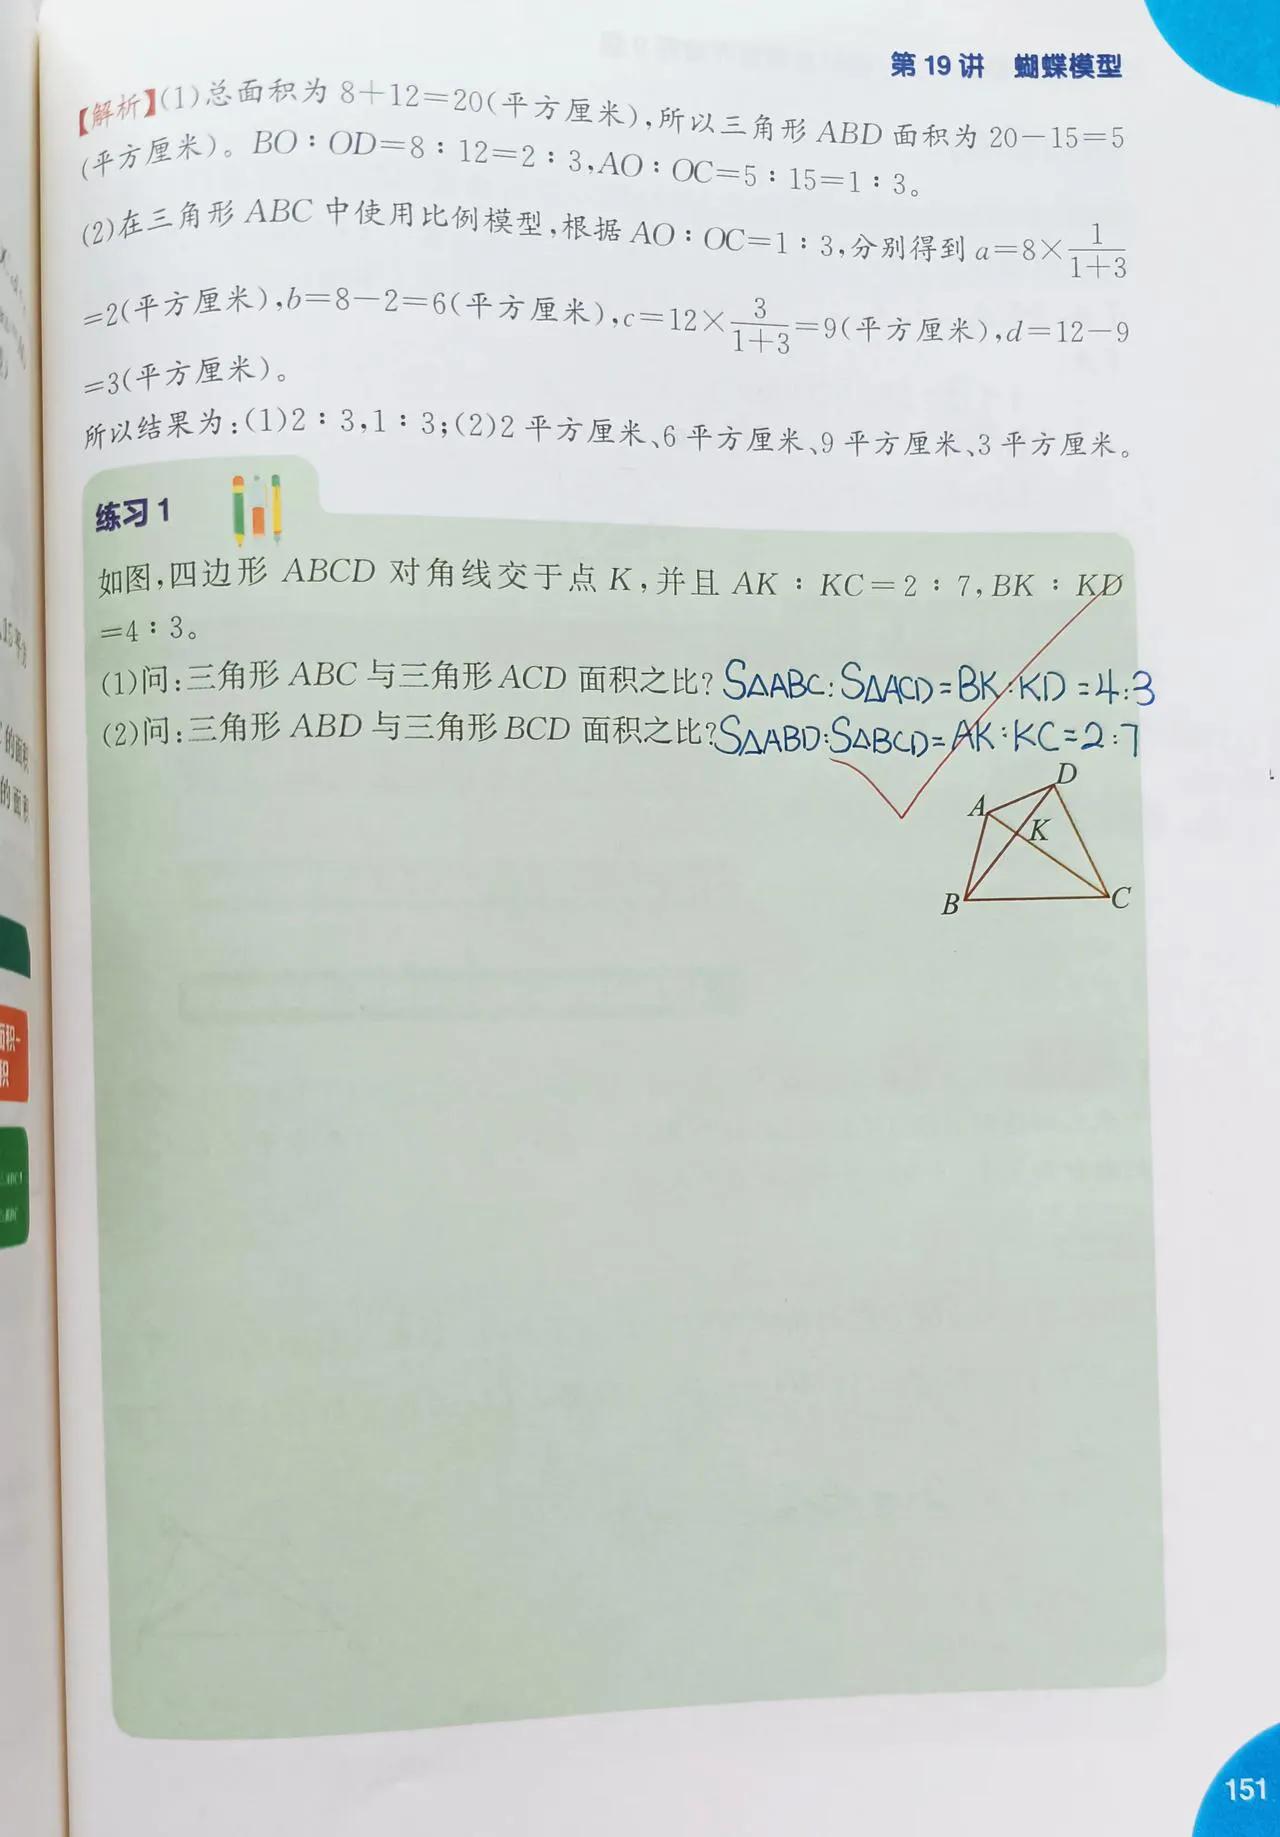 第19讲 蝴蝶模型
【解析】(1)总面积为8+12=20(平方厘米),所以三角形ABD面积为20-15=5
(平方厘米)。BO:OD=8:12=2:3,AO:OC=5:15=1:3。
(2)在三角形ABC中使用比例模型,根据AO:OC=1:3,分别得到a=8×1/(1+3)
=2(平方厘米),b=8-2=6(平方厘米),c=12×3/(1+3)=9(平方厘米),d=12-9
=3(平方厘米)。
所以结果为:(1)2:3,1:3;(2)2平方厘米、6平方厘米、9平方厘米、3平方厘米。
练习1
如图,四边形ABCD对角线交于点K,并且AK:KC=2:7,BK:KD
=4:3。
(1)问:三角形ABC与三角形ACD面积之比? S△ABC:S△ACD=BK:KD=4:3
(2)问:三角形ABD与三角形BCD面积之比? S△ABD:S△BCD=AK:KC=2:7
D
A
K
B
C
的面积
的面积
面积-
积
151